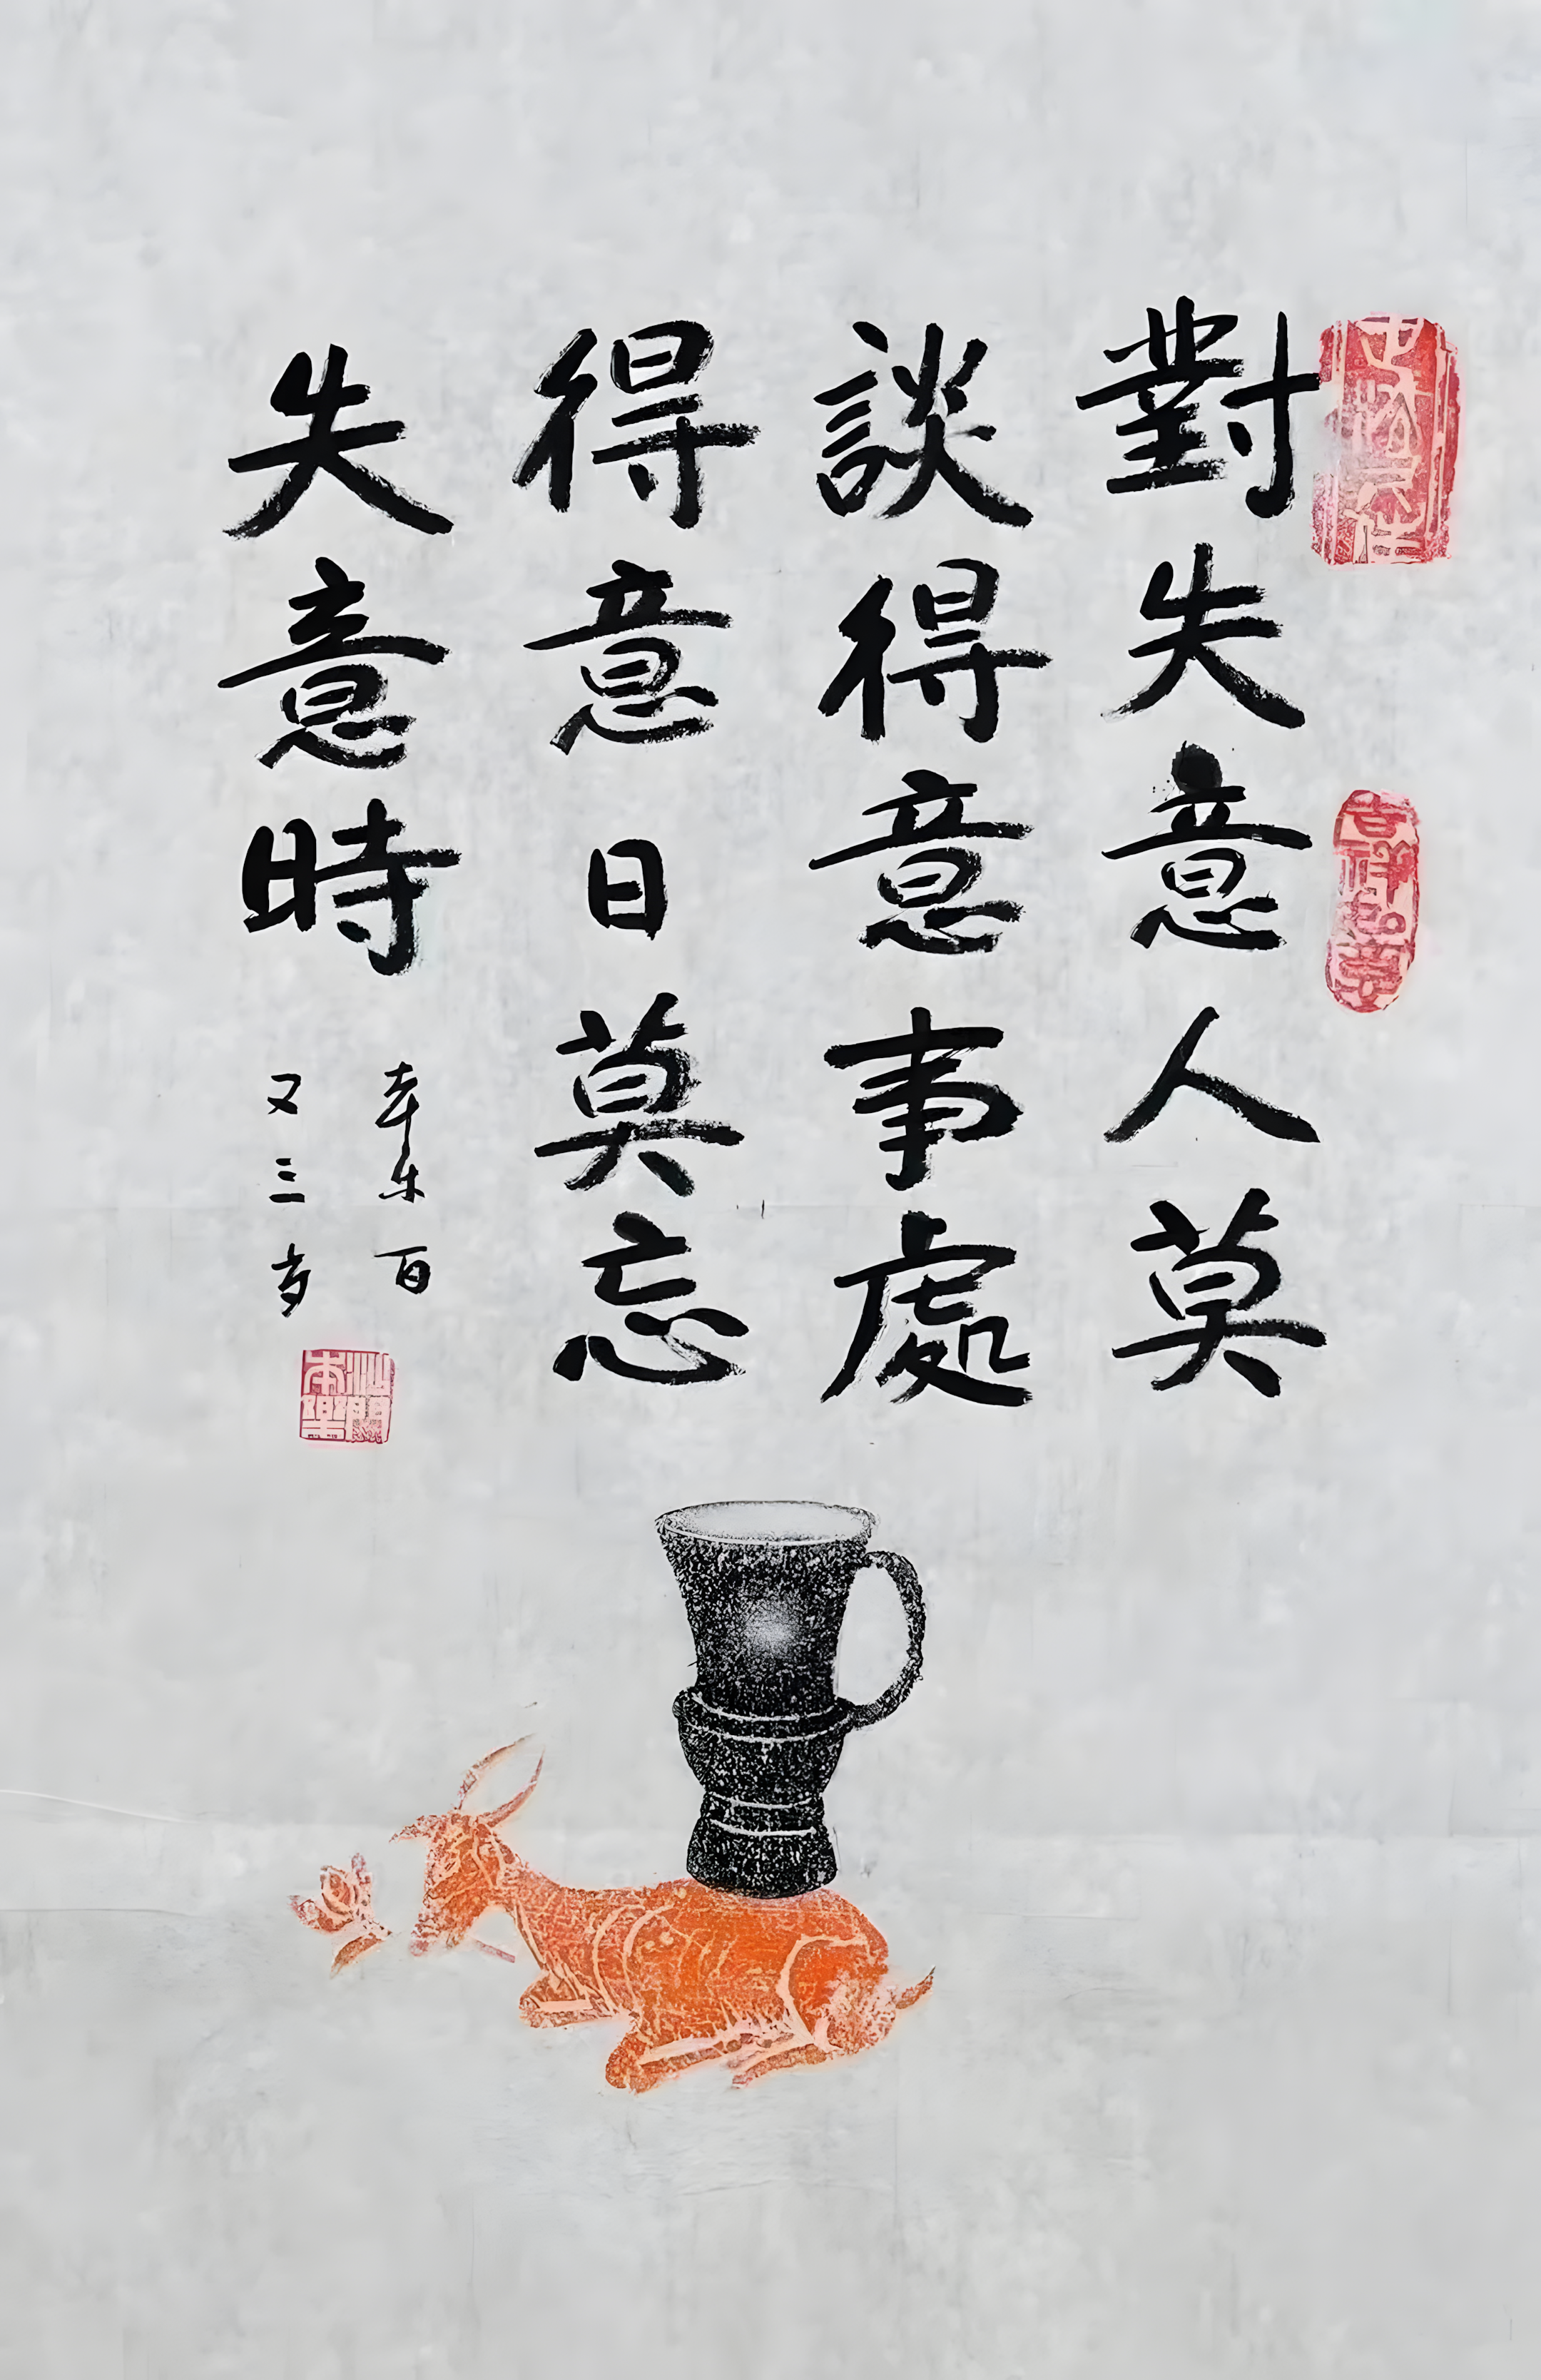 對失意人莫
談得意事處
得意日莫忘
失意時
本乐百
又三岁